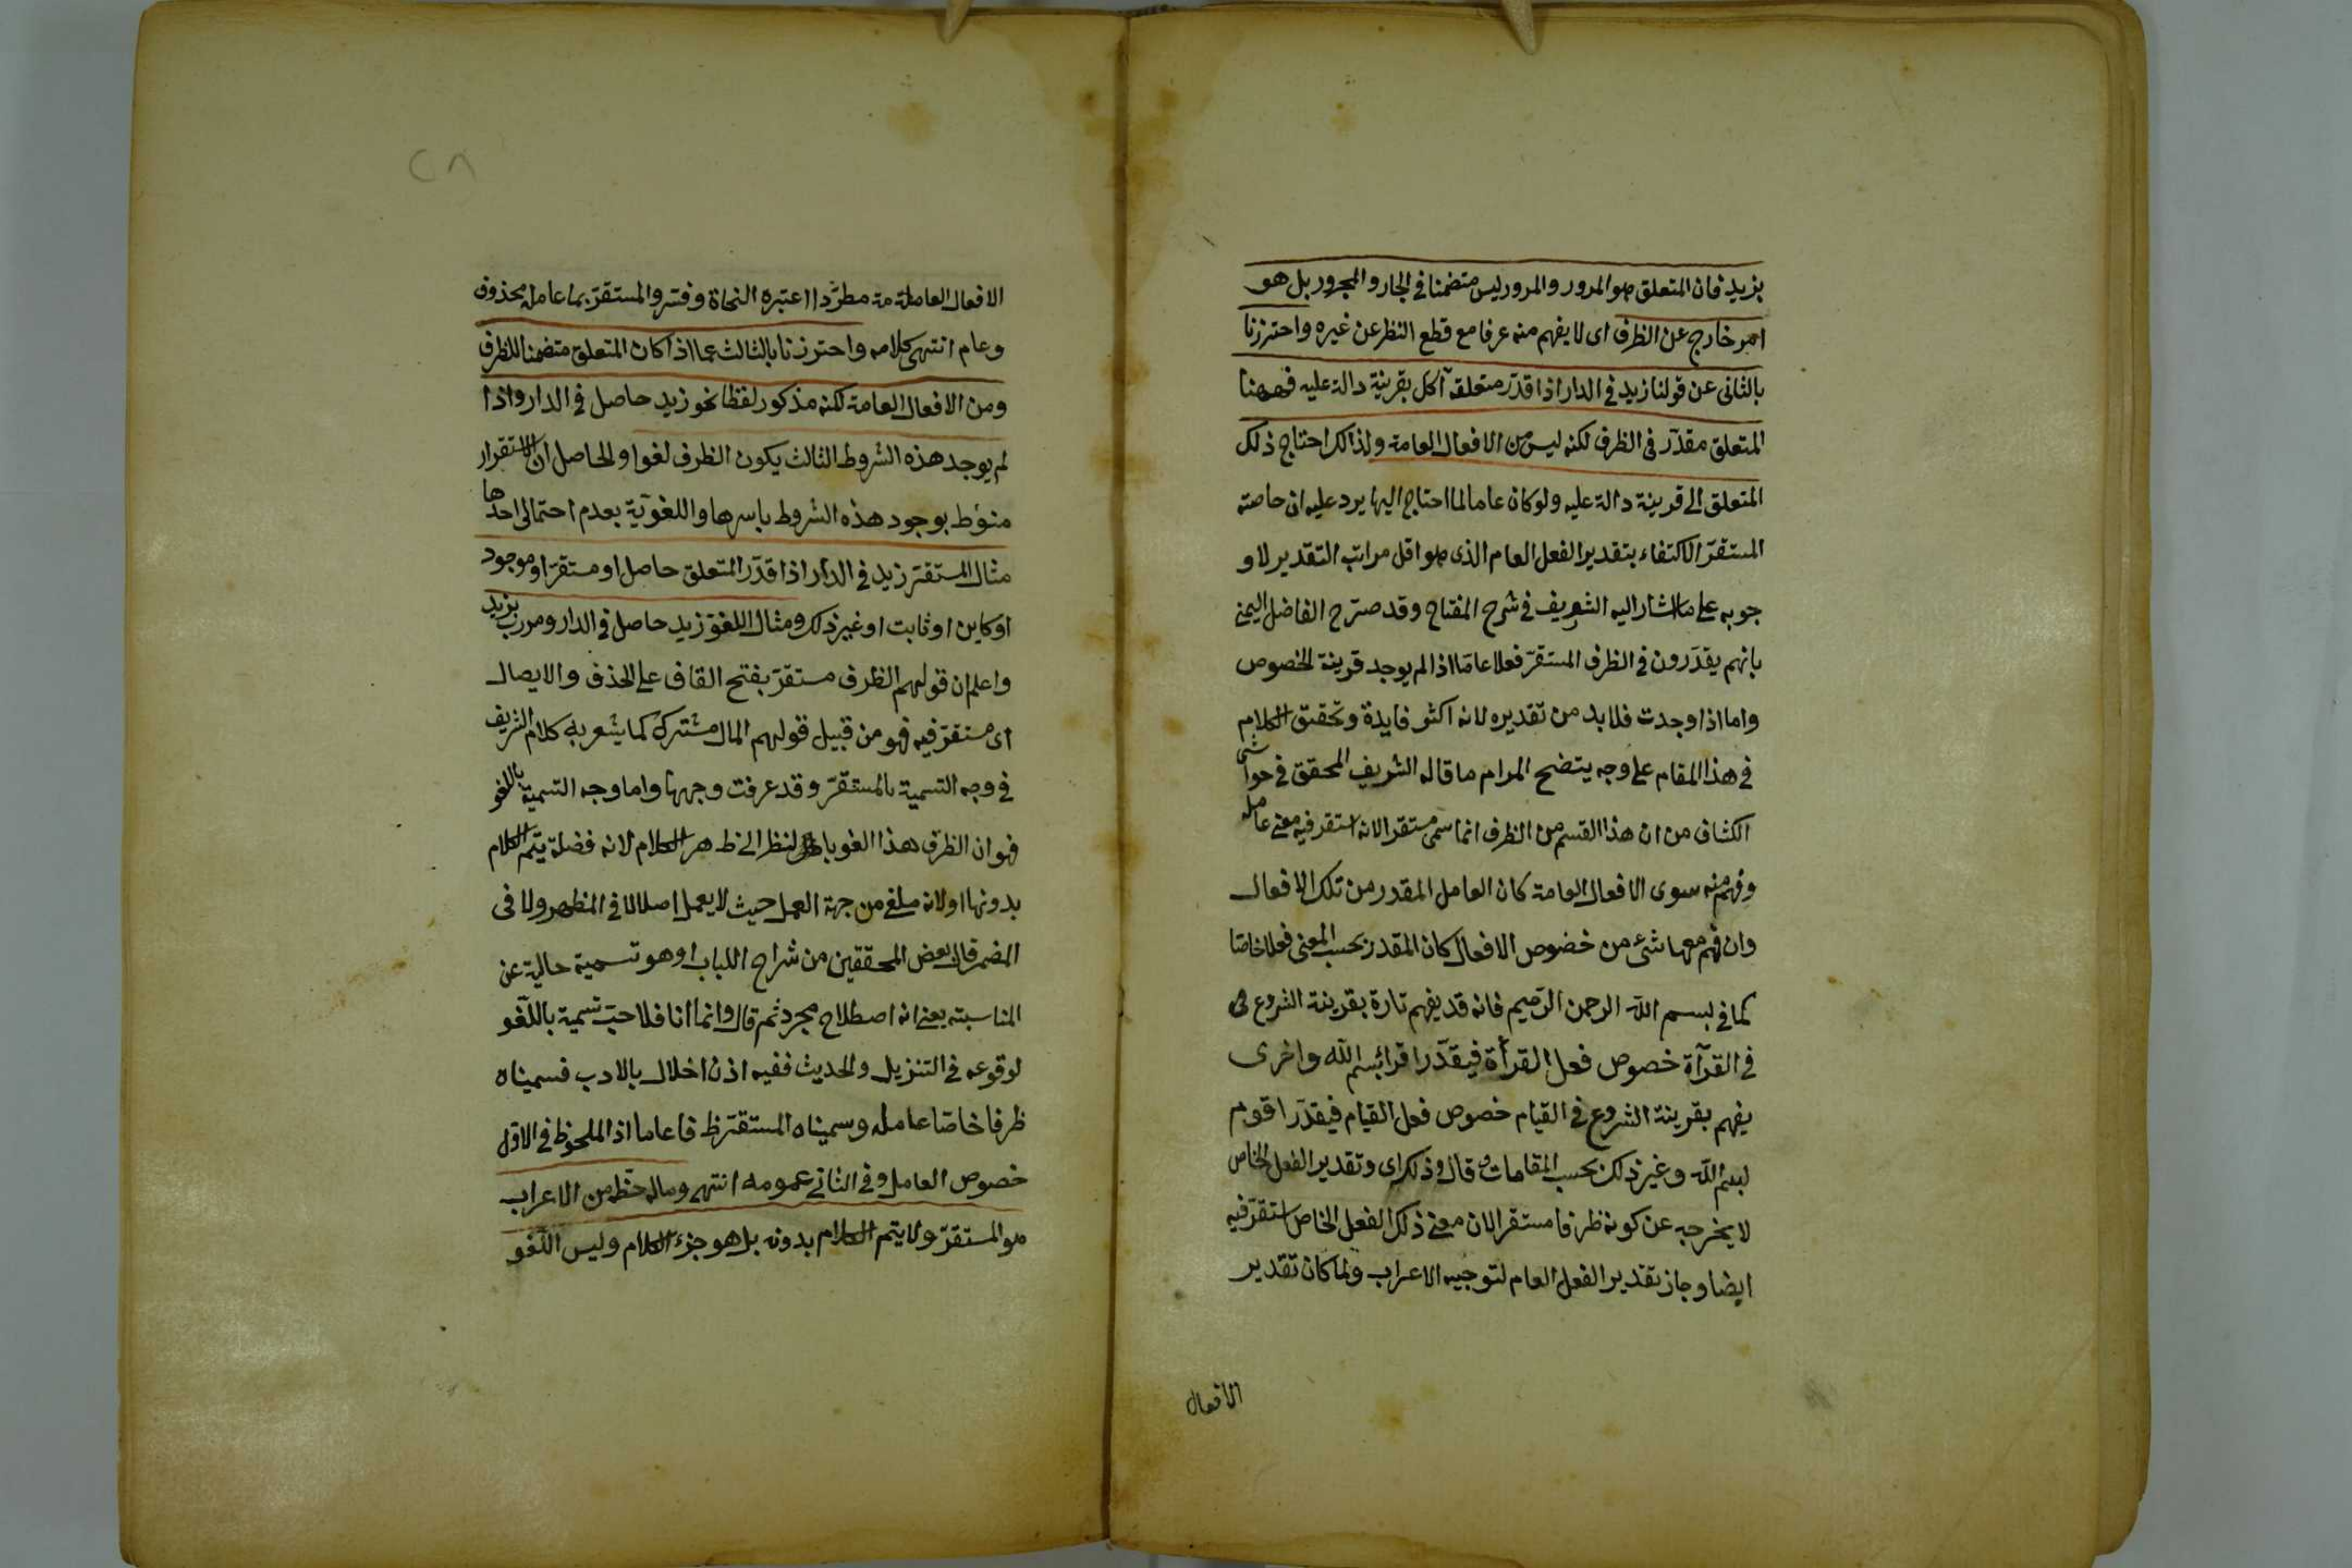 بزيد فان المتعلق هو المرور والمرور ليس متضمنا في الجار والمجرور بل هو
امر خارج عن الظرف اى لا يفهم منه عرفا مع قطع النظر عن غيره واحترزنا
بالثانى عن قولنا زيد في الدار اذا قدر متعلقه آكل بقرينة دالة عليه فههنا
المتعلق مقدر في الظرف لكنه ليس من الافعال العامة ولذالك احتاج ذلك
المتعلق الى قرينة دالة عليه ولو كان عاما لما احتاج اليها يرد عليه ان خاصته
المستقر الاكتفاء بتقدير الفعل العام الذى هو اقل مراتب التقدير لا و
جوبه على ما اشار اليه الشريف في شرح المفتاح وقد صرح الفاضل اليمنى
بانهم يقدرون في الظرف المستقر فعلا عاما اذا لم يوجد قرينة الخصوص
واما اذا وجدت فلا بد من تقديره لانه اكثر فايدة وتحقيق الكلام
في هذا المقام على وجه يتضح المرام ما قاله الشريف المحقق في حواشى
الكشاف من ان هذا القسم من الظرف انما سمى مستقرا لانه استقر فيه معنى عامله
وفهم منه سوى الافعال العامة كان العامل المقدر من تلك الافعال
وان فهم معها شئ من خصوص الافعال كان المقدر بحسب المعنى فعلا خاصا
كما في بسم الله الرحمن الرحيم فانه قد يفهم تارة بقرينة الشروع فى
في القرآة خصوص فعل القرأة فيقدر اقرا بسم الله واخرى
يفهم بقرينة الشروع في القيام خصوص فعل القيام فيقدر اقوم
بسم الله وغير ذلك بحسب المقامات قال وذلك اى وتقدير الفعل الخاص
لا يخرجه عن كونه ظرفا مستقرا لان معنى ذلك الفعل الخاص استقر فيه
ايضا وجاز تقدير الفعل العام لتوجيه الاعراب ولما كان تقدير
الافعال
٢٨
الافعال العاملة مة مطردا اعتبره النحاة وفسروا المستقر بما عامله محذوف
وعام انتهى كلامه واحترزنا بالثالث عما اذا كان المتعلق متضمنا للظرف
ومن الافعال العامة لكنه مذكور لفظا نحو زيد حاصل في الدار واذا
لم يوجد هذه الشروط الثالث يكون الظرف لغوا والحاصل ان الاستقرار
منوط بوجود هذه الشروط باسرها واللغوية بعدم احتمالى احدها
مثال المستقر زيد في الدار اذا قدر المتعلق حاصل او مستقر او موجود
او كاين او ثابت او غير ذلك ومثال اللغو زيد حاصل في الدار ومررت بزيد
واعلم ان قولهم الظرف مستقر بفتح القاف على الحذف والايصال
اى مستقر فيه فهو من قبيل قولهم المال مشترك كما يشعر به كلام الشريف
في وجه التسمية بالمستقر وقد عرفت وجهها واما وجه التسمية باللغو
فهو ان الظرف هذا لغو بالنظر الى ظاهر الكلام لانه فضلة يتم الكلام
بدونها او لانه ملغى من جهة العمل حيث لا يعمل اصلا لا في المظهر ولا فى
المضمر قال بعض المحققين من شراح اللباب او هو تسمية خالية عن
المناسبته يعنى انه اصطلاح مجرد ثم قال وانما انا فلا احب تسمية باللغو
لوقوعه في التنزيل والحديث ففيه اذن اخلال بالادب فسميناه
ظرفا خاصا عامله وسميناه المستقر ظرفا عاما اذ الملحوظ في الاول
خصوص العامل وفي الثانى عمومه انتهى وماله حظ من الاعراب
هو المستقر ولا يتم الكلام بدونه بل هو جزء الكلام وليس اللغو